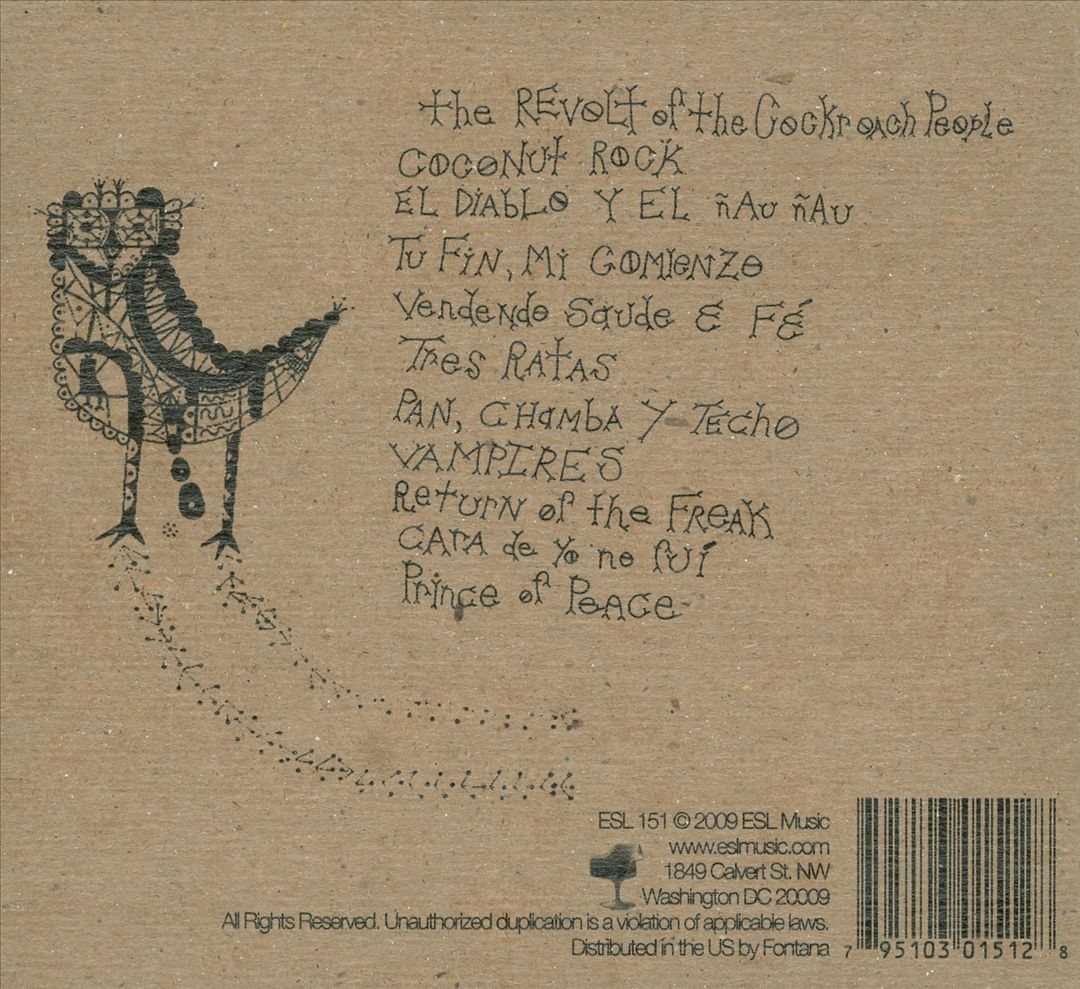 the REvoLt of the Cockroach People
COCONUt ROCK
EL DiAbLo Y EL ñAu ñAu
Tu Fin, Mi COMIENZO
Vendendo Saude & FÉ
Tres RAtAS
PAN, CHAMbA Y TECHO
VAMPIRES
Return of the FREAK
CARA de Yo no fuí
Prince of PEACE
ESL 151 © 2009 ESL Music
www.eslmusic.com
1849 Calvert St. NW
Washington DC 20009
All Rights Reserved. Unauthorized duplication is a violation of applicable laws.
Distributed in the US by Fontana
7 95103 01512 8